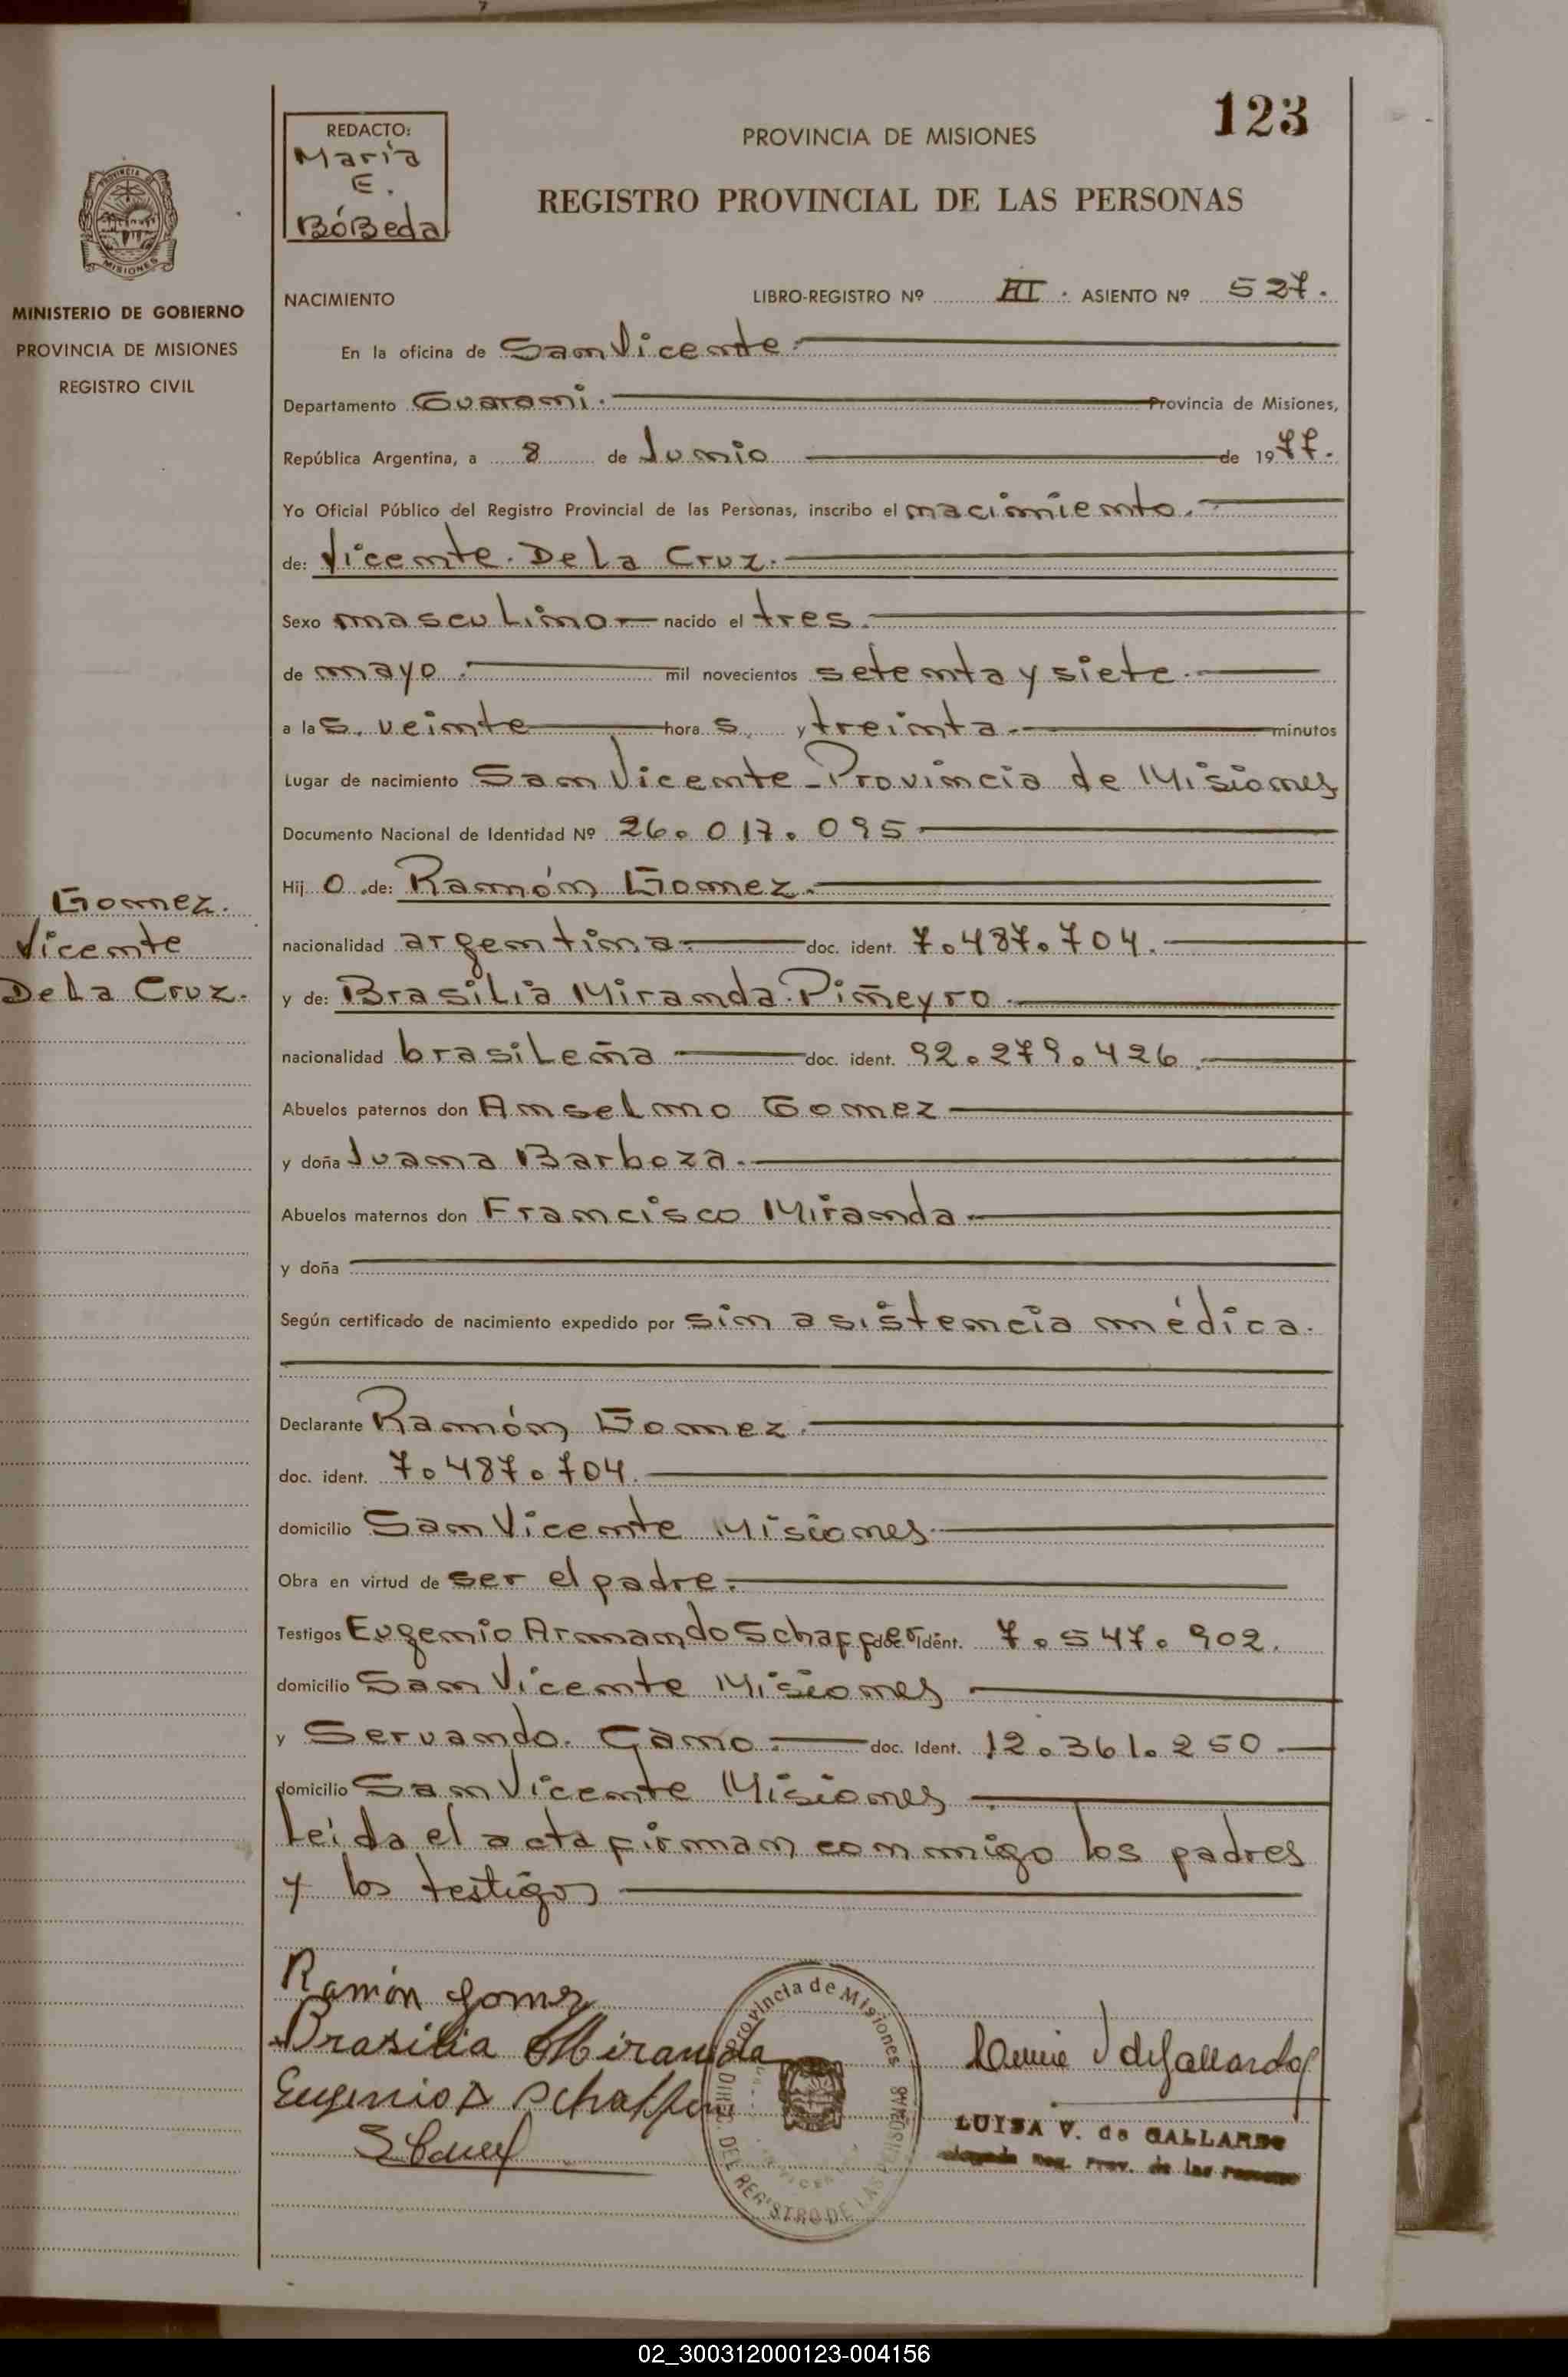 123
REDACTO:
María
E.
BóBeda
PROVINCIA DE MISIONES
REGISTRO PROVINCIAL DE LAS PERSONAS
PROVINCIA DE
MISIONES
MINISTERIO DE GOBIERNO
PROVINCIA DE MISIONES
REGISTRO CIVIL
NACIMIENTO LIBRO-REGISTRO Nº III. ASIENTO Nº 527.
En la oficina de San Vicente.
Departamento Guarani. Provincia de Misiones,
República Argentina, a 8 de Junio de 1977.
Yo Oficial Público del Registro Provincial de las Personas, inscribo el nacimiento.
de: Vicente De La Cruz.
Sexo masculino nacido el tres.
de mayo. mil novecientos setenta y siete.
a las. veinte horas. y treinta. minutos
Lugar de nacimiento San Vicente - Provincia de Misiones
Documento Nacional de Identidad Nº 26.017.095
Hijo de: Ramón Gomez.
Gomez.
Vicente
De La Cruz.
nacionalidad argentina doc. ident. 7.487.704.
y de: Brasilia Miranda Piñeyro.
nacionalidad brasileña doc. ident. 92.279.426.
Abuelos paternos don Anselmo Gomez
y doña Juana Barboza.
Abuelos maternos don Francisco Miranda
y doña
Según certificado de nacimiento expedido por sin asistencia médica.
Declarante Ramón Gomez.
doc. ident. 7.487.704.
domicilio San Vicente Misiones
Obra en virtud de ser el padre.
Testigos Eugenio Armando Schaffer doc. Ident. 7.547.902.
domicilio San Vicente Misiones
y Servando Cano. doc. Ident. 12.361.250
domicilio San Vicente Misiones
Leída el acta firman conmigo los padres
y los testigos
Ramón Gomez
Brasilia Miranda
Eugenio A Schaffer
Provincia de Misiones
DEL REGISTRO DE LAS PERSONAS
LUISA V. de GALLARDO
Reg. Prov. de las Personas
02_300312000123-004156